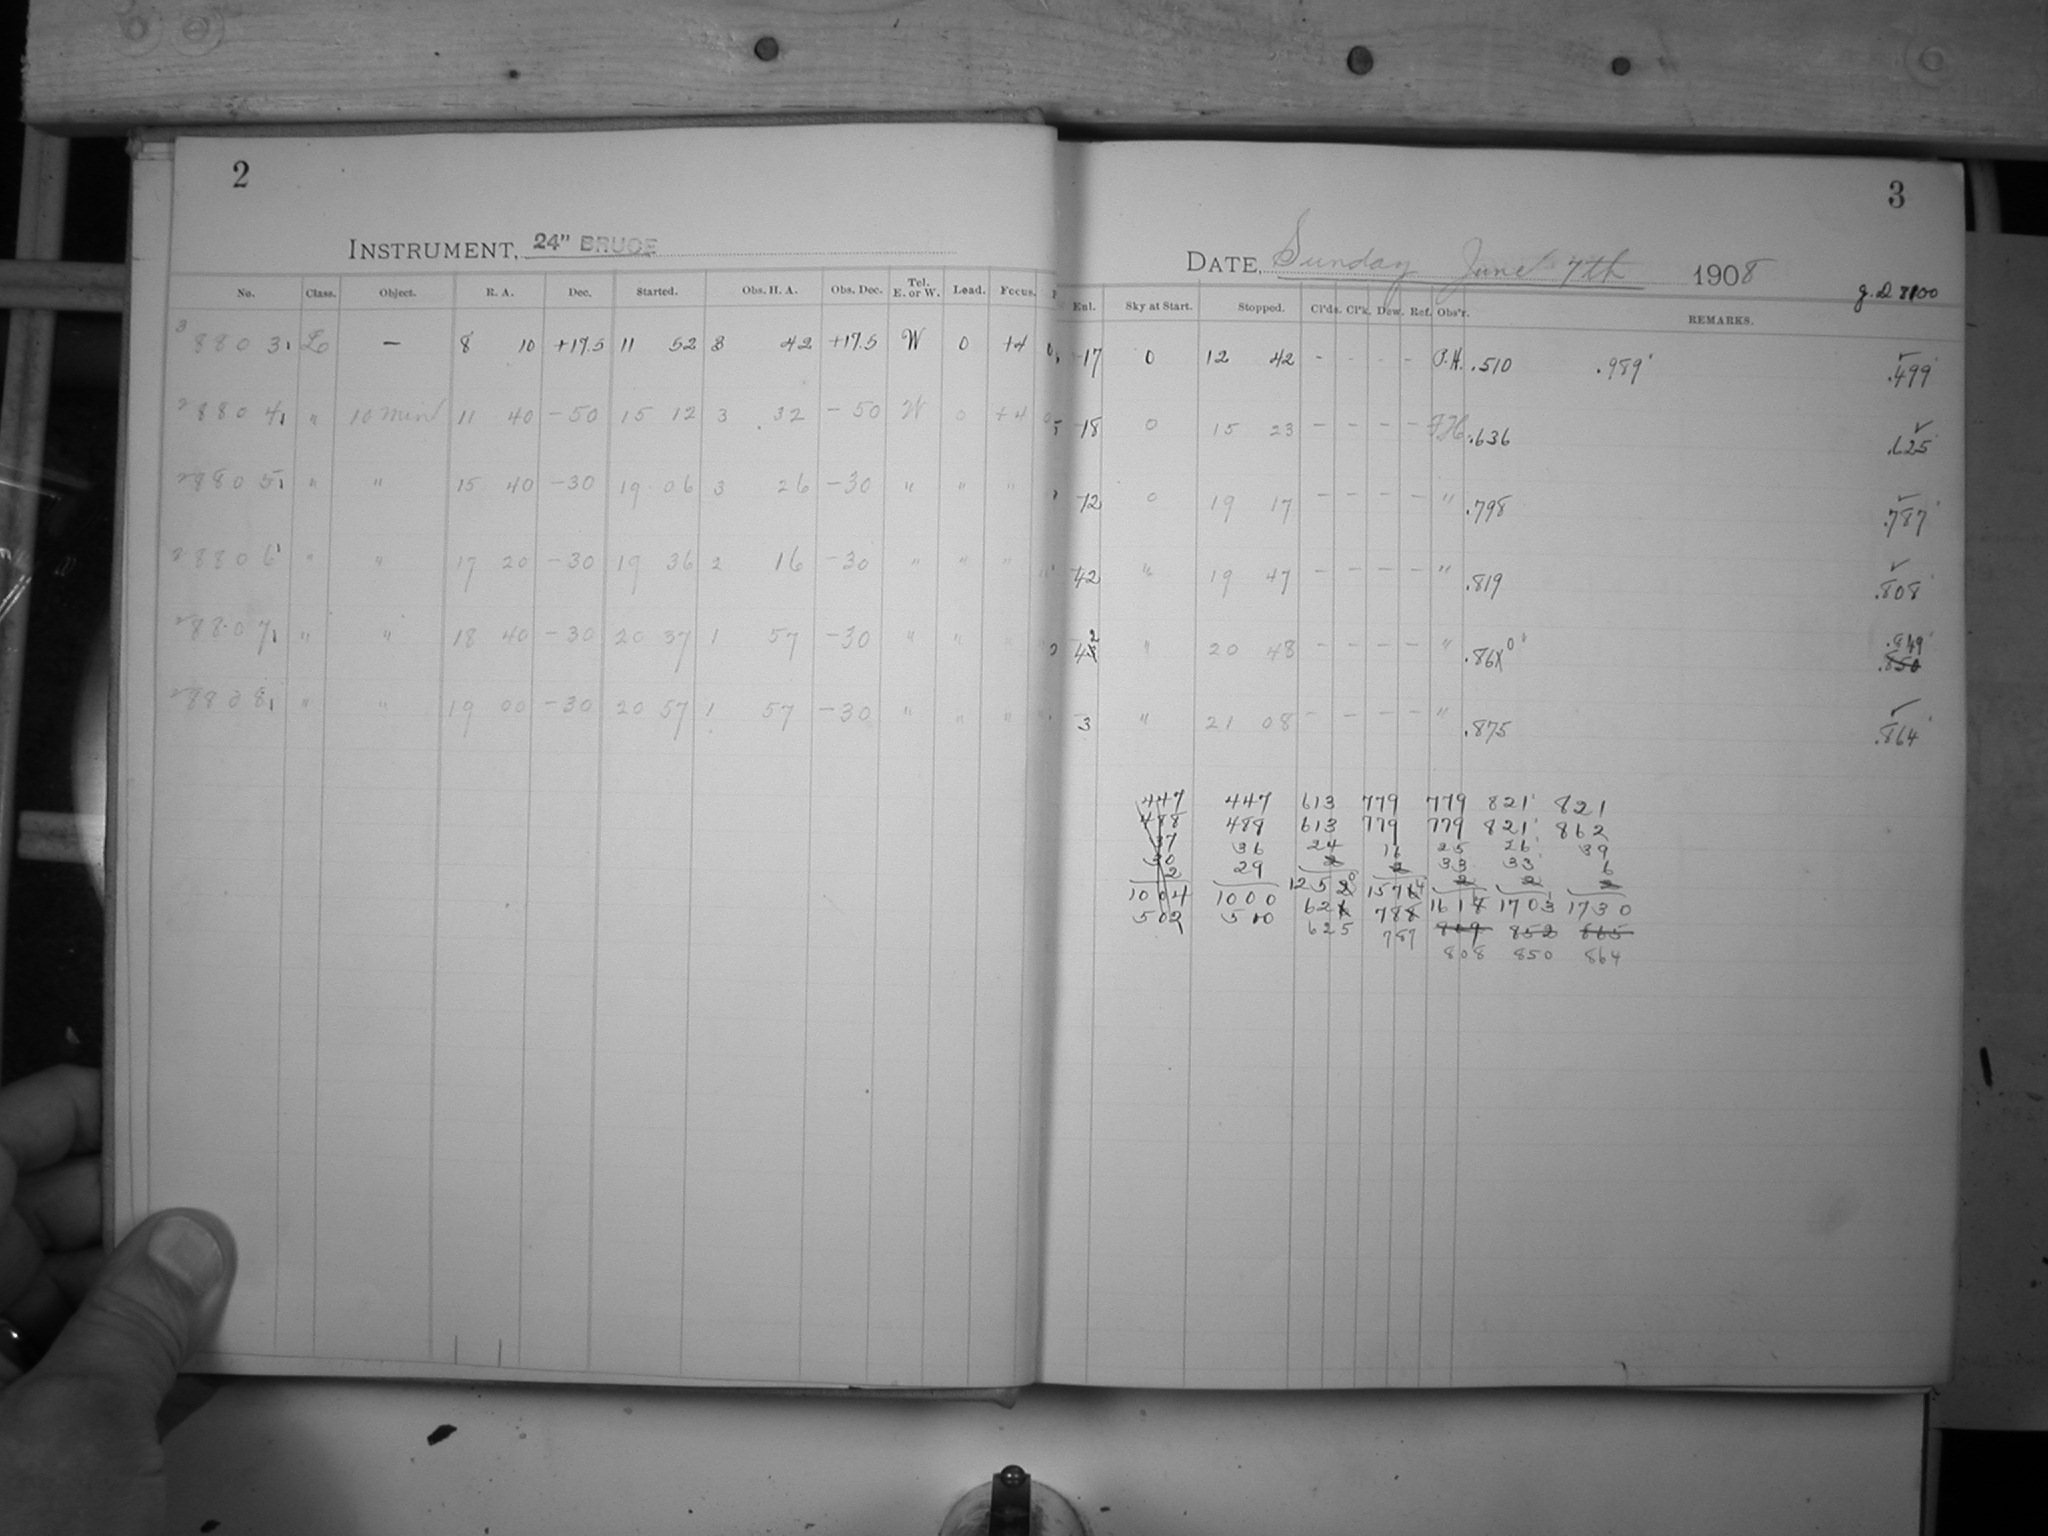 2
INSTRUMENT, 24" BRUCE
No. Class. Object. R. A. Dec. Started. Obs. H. A. Obs. Dec. Tel. E. or W. Lead. Focus.
8803 L — 8 10 +17.5 11 52 3 42 +17.5 W 0 +4
8804 " 10 min 11 40 -50 15 12 3 32 -50 W 0 +4
8805 " " 15 40 -30 19 06 3 26 -30 " " "
8806 " " 17 20 -30 19 36 2 16 -30 " " "
8807 " " 18 40 -30 20 37 1 57 -30 " " "
8808 " " 19 00 -30 20 57 1 57 -30 " " "
3
DATE, Sunday June 7th 1908
g. D 8100
Enl. Sky at Start. Stopped. Cl'ds. Cl'k. Dew. Ref. Obs'r. REMARKS.
17 0 12 42 - - - - P.H. .510 .989 .499
18 0 15 23 - - - - .636 .625
12 0 19 17 - - - - " .798 .787
42 " 19 47 - - - - " .819 .808
2
" 20 48 - - - - " .86 0 .849
.850
3 " 21 08 - - - - " .875 .864
447 447 613 779 779 821 821
488 488 613 779 779 821 862
37 36 24 16 25 26 39
30 29 2 2 33 33 6
2 2 2 2
1004 1000 1252 0 1576 4 1618 1703 1730
502 500 626 788 809 852 865
625 787 808 850 864